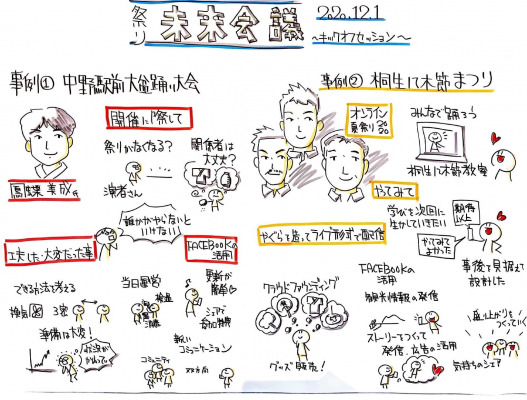 祭り 未来会議 2020.12.1
～キックオフセッション～
事例① 中野駅前大盆踊り大会
開催に際して
祭りがなくなる？
演者さん
関係者は
大丈夫？
誰かがやらないと
いけない
工夫した・大変だった事
できる方法で考える
換気
3密
準備は大変！
状況が
かわって
当日運営
検温
消毒
コミュニティ
FACEBookの
活用
更新が
シェアで
新しい
コミュニケーション
双方向
事例② 桐生八木節まつり
オンライン
夏祭り 2020
みんなで踊ろう
桐生八木節教室
やってみて
学びを次回に
生かしていきたい
期待
以上
やってみて
よかった
事後を見据えて
設計した
やぐらを造ってライブ形式で配信
クラウドファンディング
グッズ販売！
FACEBookの
活用
観光情報の発信
ストーリーをつくって
発信、広告の活用
盛り上がりを
つくっていく
気持ちのシェア